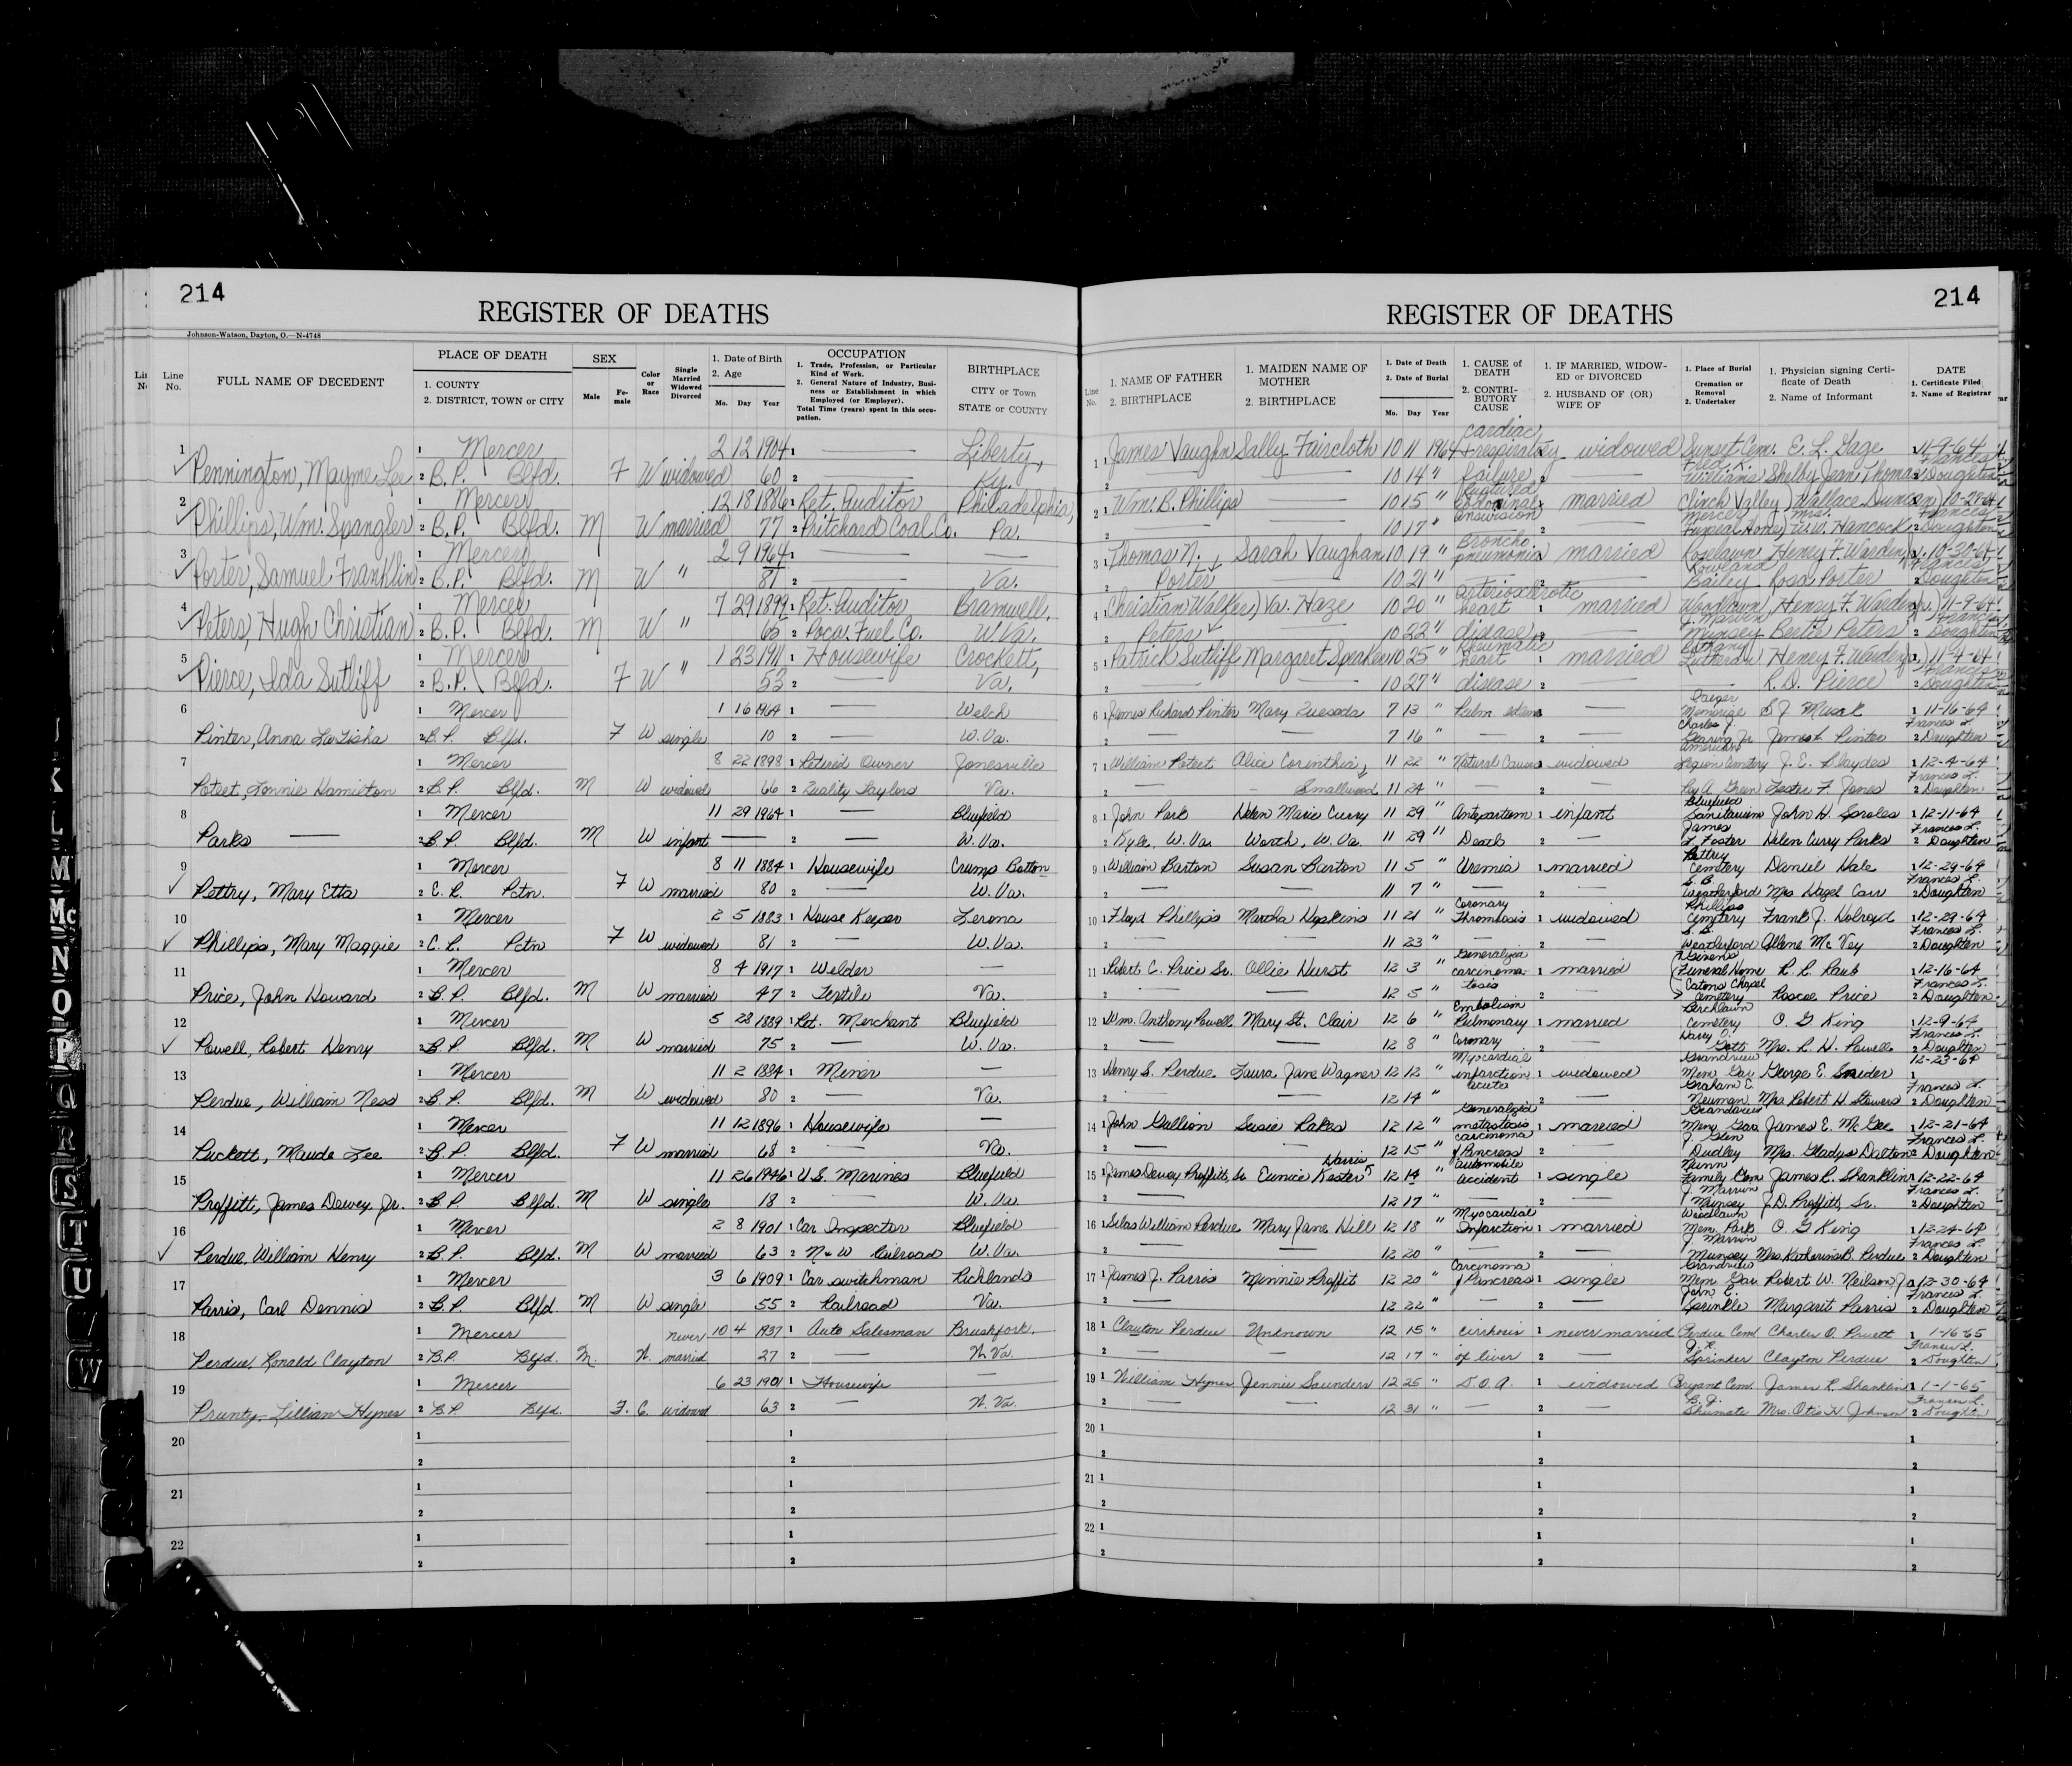 214
REGISTER OF DEATHS
Johnson-Watson, Dayton, O.—N-4748
Line No.
FULL NAME OF DECEDENT
PLACE OF DEATH
1. COUNTY
2. DISTRICT, TOWN or CITY
SEX
Male
Female
Color or Race
Single Married Widowed Divorced
1. Date of Birth
2. Age
Mo. Day Year
OCCUPATION
1. Trade, Profession, or Particular Kind of Work.
2. General Nature of Industry, Business or Establishment in which Employed (or Employer).
Total Time (years) spent in this occupation.
BIRTHPLACE
CITY or Town
STATE or COUNTY
1 1 Mercer 2 12 1904 1 — Liberty,
Pennington, Mayme Lee 2 B.P. Blfd. F W widowed 60 2 — Ky.
2 1 Mercer 12 18 1886 1 Ret. Auditor Philadelphia,
Phillips, Wm. Spangler 2 B.P. Blfd. M W married 77 2 Pritchard Coal Co. Pa.
3 1 Mercer 2 9 1964 1 —
Porter, Samuel Franklin 2 B.P. Blfd. M W " 81 2 — Va.
4 1 Mercer 7 29 1899 1 Ret. Auditor Bramwell,
Peters, Hugh Christian 2 B.P. Blfd. M W " 65 2 Poca. Fuel Co. W. Va.
5 1 Mercer 1 23 1911 1 Housewife Crockett,
Pierce, Ida Sutliff 2 B.P. Blfd. F W " 53 2 — Va.
6 1 Mercer 1 16 1964 1 — Welch
Pinter, Anna LaTisha 2 B.P. Blfd. F W single 10 2 — W. Va.
7 1 Mercer 8 22 1898 1 Retired Owner Jonesville
Poteet, Lonnie Hamilton 2 B.P. Blfd. M W widowed 66 2 Quality Taylors Va.
8 1 Mercer 11 29 1964 1 — Bluefield
Parks — 2 B.P. Blfd. M W infant — 2 — W. Va.
9 1 Mercer 8 11 1884 1 Housewife Crumps Bottom
Pettry, Mary Etta 2 E. R. Pctn. F W married 80 2 — W. Va.
10 1 Mercer 2 5 1883 1 House Keeper Lerona
Phillips, Mary Maggie 2 E. R. Pctn F W widowed 81 2 — W. Va.
11 1 Mercer 8 4 1917 1 Welder —
Price, John Howard 2 B.P. Blfd. M W married 47 2 Textile Va.
12 1 Mercer 5 28 1889 1 Ret. Merchant Bluefield
Powell, Robert Henry 2 B.P. Blfd. M W married 75 2 — W. Va.
13 1 Mercer 11 2 1884 1 Miner —
Perdue, William Ness 2 B.P. Blfd. M W widowed 80 2 — Va.
14 1 Mercer 11 12 1896 1 Housewife —
Puckett, Maude Lee 2 B.P. Blfd. F W married 68 2 — Va.
15 1 Mercer 11 26 1946 1 U.S. Marines Bluefield
Proffitt, James Dewey Jr. 2 B.P. Blfd. M W single 18 2 — W. Va.
16 1 Mercer 2 8 1901 1 Car Inspector Bluefield
Perdue, William Henry 2 B.P. Blfd. M W married 63 2 N & W Railroad W. Va.
17 1 Mercer 3 6 1909 1 Car switchman Richlands
Parris, Carl Dennis 2 B.P. Blfd M W single 55 2 Railroad Va.
18 1 Mercer never 10 4 1937 1 Auto Salesman Brushfork.
Perdue, Ronald Clayton 2 B.P. Blfd. M. W. married 27 2 — W. Va.
19 1 Mercer 6 23 1901 1 Housewife —
Prunty Lillian Hynes 2 B.P. Blfd. F. C. widowed 63 2 — W. Va.
20 1 1
2 2
21 1 1
2 2
22 1 1
2 2
214
REGISTER OF DEATHS
Line No.
1. NAME OF FATHER
2. BIRTHPLACE
1. MAIDEN NAME OF MOTHER
2. BIRTHPLACE
1. Date of Death
2. Date of Burial
Mo. Day Year
1. CAUSE of DEATH
2. CONTRIBUTORY CAUSE
1. IF MARRIED, WIDOWED or DIVORCED
2. HUSBAND OF (OR) WIFE OF
1. Place of Burial Cremation or Removal
2. Undertaker
1. Physician signing Certificate of Death
2. Name of Informant
DATE
1. Certificate Filed
2. Name of Registrar
1 1 James Vaughn Sally Faircloth 10 11 1964 cardiac & respiratory widowed Sunset Cem. E. L. Gage 11-9-64
2 — — 10 14 " failure 2 — Fred K. Williams Shelby Jean Thomas Frances Doughten
2 1 Wm. B. Phillips — 10 15 " Ruptured abdominal married Clinch Valley Wallace Duncan 10-28-64
2 — — 10 17 " 2 — Mercer Funeral Home Mrs. W. W. Hancock Frances 2 Doughten
3 1 Thomas N. Sarah Vaughan 10 19 " Broncho pneumonia married Roselawn Henry F. Warden, Jr. 10-30-64
2 Porter 10 21 " — 2 — Rowland Bailey Rosa Porter Frances 2 Doughten
4 1 Christian Walker Va. Haze 10 20 " arteriosclerotic heart 1 married Woodlawn Henry F. Warden Jr. 11-9-64
2 Peters — 10 22 " disease 2 — J. Marvin Munsey Bertie Peters Frances 2 Doughten
5 1 Patrick Sutliff Margaret Spraker 10 25 " Rheumatic heart 1 married Lutheran Henry F. Warden Jr. 11-4-64
2 — — 10 27 " disease 2 — — R. D. Pierce Frances 2 Doughten
6 1 James Richard Pinter Mary Quesada 7 13 " Pulm edema Iaeger Memorial S J Musak 1 11-16-64
2 — — 7 16 " — 2 — Charles J. Gearing Jr James L Pinter Frances L. 2 Doughten
7 1 William Poteet Alice Corinthia 11 22 " Natural Causes widowed American Legion Cemetery J. E. Blaydes 1 12-4-64
2 — Smallwood 11 24 " — 2 — Roy A Green Lester F. Jones Frances L. 2 Doughten
8 1 John Park Helen Marie Curry 11 29 " Antepartem 1 infant Bluefield Sanitarium John H. Sproles 1 12-11-64
2 Kyle, W. Va. Worth, W. Va. 11 29 " Death 2 — James T. Foster Helen Curry Parks Frances L. 2 Doughten
9 1 William Barton Susan Barton 11 5 " Uremia 1 married Pettry Cemetery Daniel Hale 1 12-29-64
2 — — 11 7 " — 2 — S. B. Weatherford Mrs Hazel Carr Frances L. 2 Doughten
10 1 Floyd Phillips Martha Hopkins 11 21 " Coronary Thrombosis 1 widowed Phillips Cemetery Frank J. Holroyd 1 12-29-64
2 — — 11 23 " — 2 — S. B. Weatherford Allene McVey Frances L. 2 Doughten
11 1 Robert C. Price Sr. Ollie Hurst 12 3 " Generalized carcinomatosis 1 married Givens Funeral Home R. R. Raub 1 12-16-64
2 — — 12 5 " 2 — Catons Chapel Cemetery Roscoe Price Frances L. 2 Doughten
12 1 Wm. Anthony Powell Mary St. Clair 12 6 " Embolism Pulmonary 1 married Birchlawn Cemetery O. G King 1 12-9-64
2 — — 12 8 " Coronary 2 — Harry C. Gott Mrs. R. H. Powell Frances L. 2 Doughten
13 1 Henry S. Perdue Laura Jane Wagner 12 12 " Myocardial infarction acute 1 widowed Grandview Mem Gar George E. Snider 12-23-64
2 — — 12 14 " — 2 — Graham E. Neuman Mrs Robert H. Stowers Frances L. 2 Doughten
14 1 John Gullion Susie Rakes 12 12 " Generalized metastasis 1 married Grandview Mem. Gar. James E. McGee 1 12-21-64
2 — — 12 15 " carcinoma of Pancreas 2 — J. Glen Dudley Mrs. Gladys Dalton Frances L. 2 Doughten
15 1 James Dewey Proffitt, Sr. Eunice Kester Harris 12 14 " automobile accident 1 single Nunn Family Cem James R. Shanklin 1 12-22-64
2 — — 12 17 " — 2 — J. Marvin Munsey J. D. Proffitt, Sr. Frances L. 2 Doughten
16 1 Silas William Perdue Mary Jane Hill 12 18 " Myocardial Infarction 1 married Woodlawn Mem. Park O. G King 1 12-24-64
2 — — 12 20 " — 2 — J Marvin Munsey Mrs. Katharine B. Perdue Frances L. 2 Doughten
17 1 James J. Parris Minnie Proffit 12 20 " Carcinoma of Pancreas 1 single Grandview Mem Gar. Robert W. Neilson Ja 12-30-64
2 — — 12 22 " — 2 — John C. Sprinkle Margaret Parris Frances L. 2 Doughten
18 1 Clayton Perdue Unknown 12 15 " cirrhosis 1 never married Perdue Cem Charles O. Pruett 1 1-16-65
2 — — 12 17 " of liver 2 — Clayton Perdue Frances L. 2 Doughten
19 1 William Hynes Jennie Saunders 12 25 " D.O.A. 1 widowed Bryant Cem. James R. Shanklin 1 1-1-65
2 — — 12 31 " — 2 — Shumate Mrs. Otis H Johnson Frances L. 2 Doughten
20 1 1 1
2 2 2
21 1 1 1
2 2 2
22 1 1 1
2 2 2
K L M Mc N O P Q R S T U V W